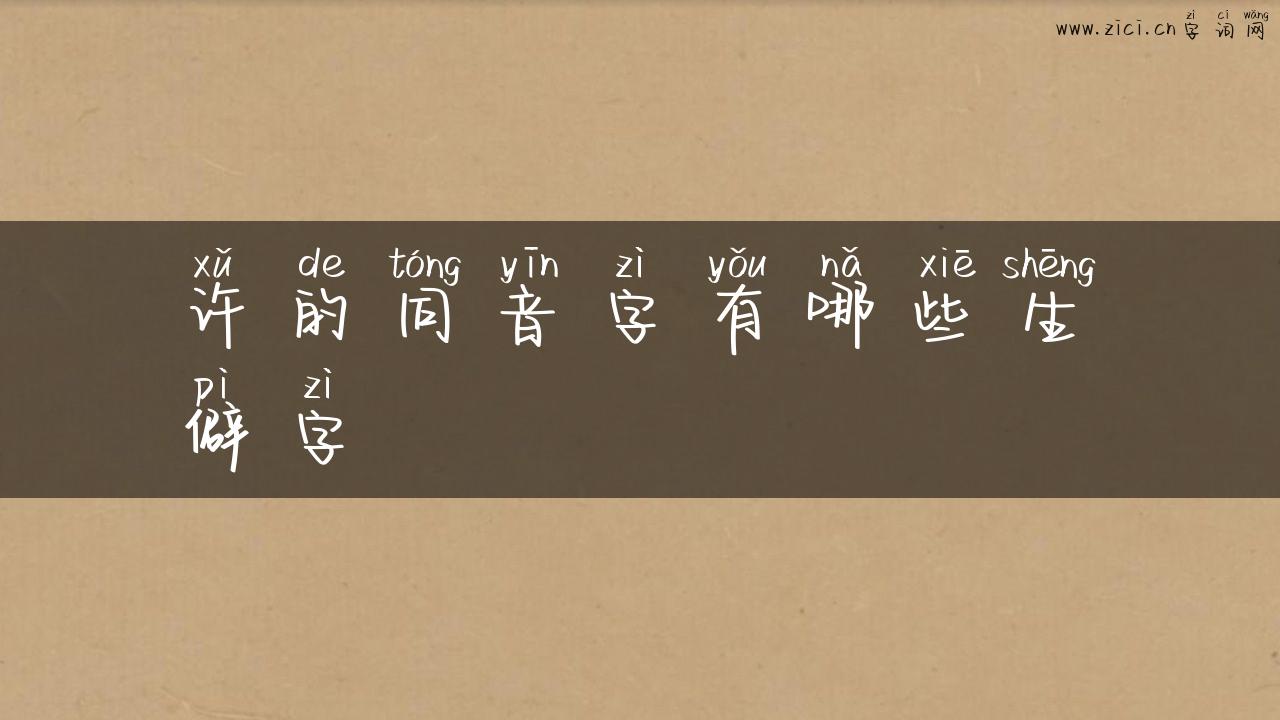 zì cí wǎng
www.zici.cn 字词网
xǔ de tóng yīn zì yǒu nǎ xiē shēng
许的同音字有哪些生
pì zì
僻字